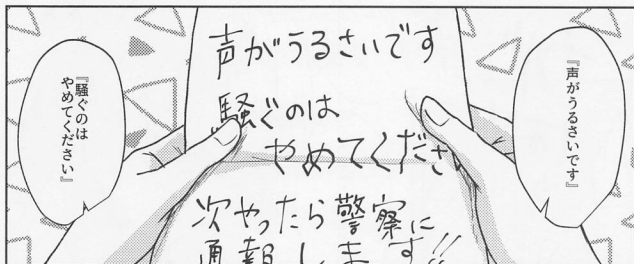 『声がうるさいです』
声がうるさいです
騒ぐのは
やめてくださ
次やったら警察に
通報します!!
『騒ぐのは
やめてください』